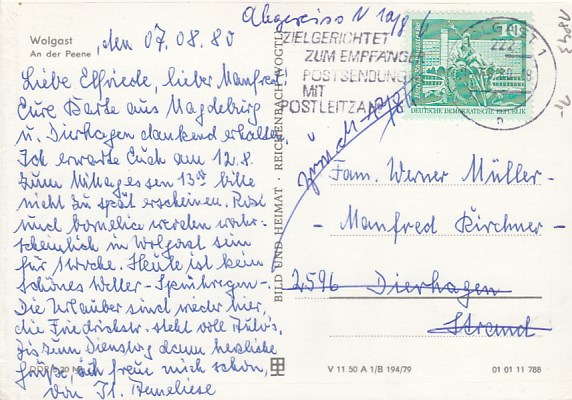 Wolgast
An der Peene
, den 07.08.80
Liebe Elfriede, lieber Manfred!
Eure Karte aus Magdeburg
u. Dierhagen dankend erhalten.
Ich erwarte Euch am 12.8.
zum Mittagessen 13 bitte
nicht zu spät erscheinen. Rosi
und werden wahr-
scheinlich in Wolgast sein
für 1 Woche. Heute ist kein
schönes Wetter - Sprühregen -
Die Urlauber sind wieder hier,
die Friedrichstr. steht voll Auto's,
Bis zum Dienstag dann herzliche
Grüße, ich freue mich schon,
von Anneliese
BILD UND HEIMAT · REICHENBACH (VOGTL
Abgereist 10/8
ZIELGERICHTET
ZUM EMPFÄNGER
POSTSENDUNG
MIT
POSTLEITZA
DEUTSCHE DEMOKRATISCHE REPUBLIK
222
1843
1,-
zurück
Fam. Werner Müller -
- Manfred Kirchner -
2596 Dierhagen
Strand
V 11 50 A 1/B 194/79
01 01 11 788